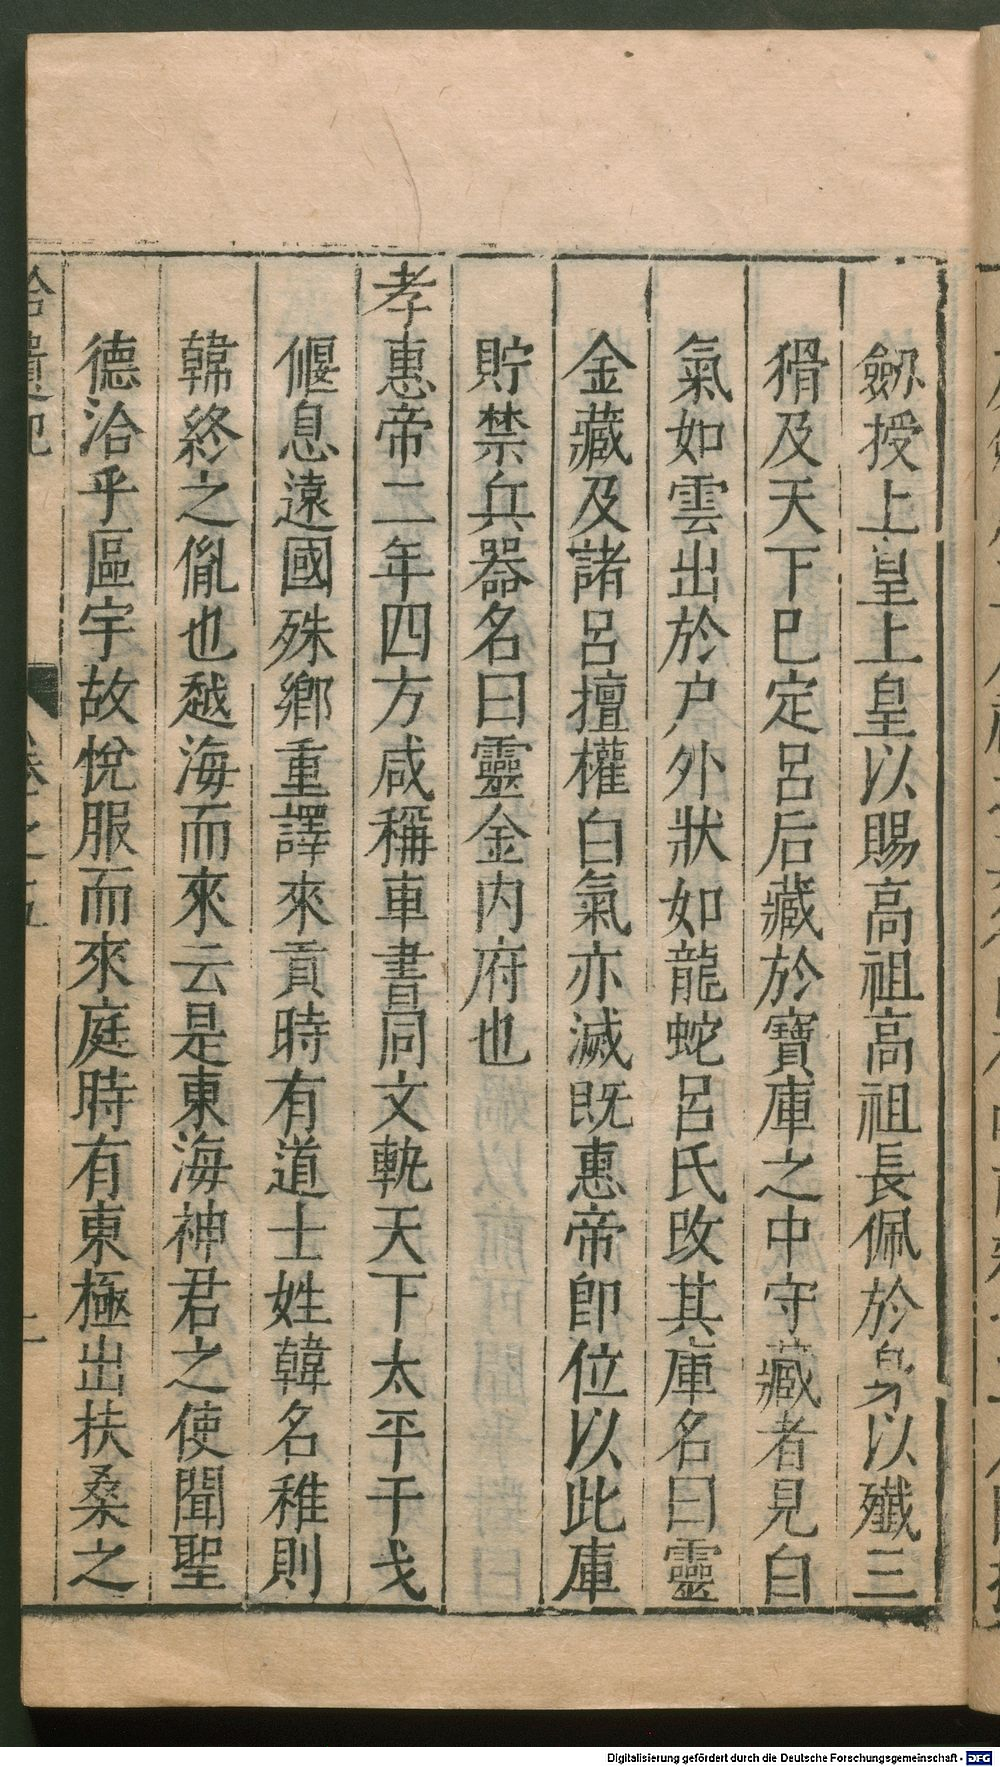 劒授上皇上皇以賜高祖高祖長佩於身以殲三
猾及天下巳定呂后藏於寶庫之中守藏者見白
氣如雲出於户外狀如龍蛇呂氏改其庫名曰靈
金藏及諸呂擅權白氣亦滅既惠帝卽位以此庫
貯禁兵器名曰靈金内府也
孝惠帝二年四方咸稱車書同文軌天下太平干戈
偃息遠國殊鄉重譯來貢時有道士姓韓名稚則
韓終之胤也越海而來云是東海神君之使聞聖
德洽乎區宇故悅服而來庭時有東極出扶桑之
拾遺記 卷之五 二
Digitalisierung gefördert durch die Deutsche Forschungsgemeinschaft - DFG